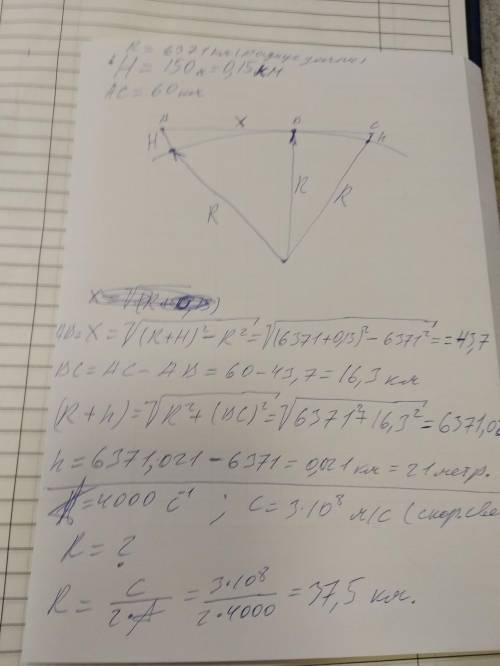 R = 6371 км (радиус земли)
H = 150 м = 0,15 км
AC = 60 км
A
X
B
C
H
h
R
R
R
AB = X = √(R+H)² - R² = √(6371+0,15)² - 6371² = = 43,7
BC = AC - AB = 60 - 43,7 = 16,3 км
(R + h) = √R² + (BC)² = √6371² + 16,3² = 6371,02
h = 6371,021 - 6371 = 0,021 км = 21 метр.
= 4000 c⁻¹ ; c = 3·10⁸ м/с (скор. све
R = ?
R = c / 2· = 3·10⁸ / 2·4000 = 37,5 км.